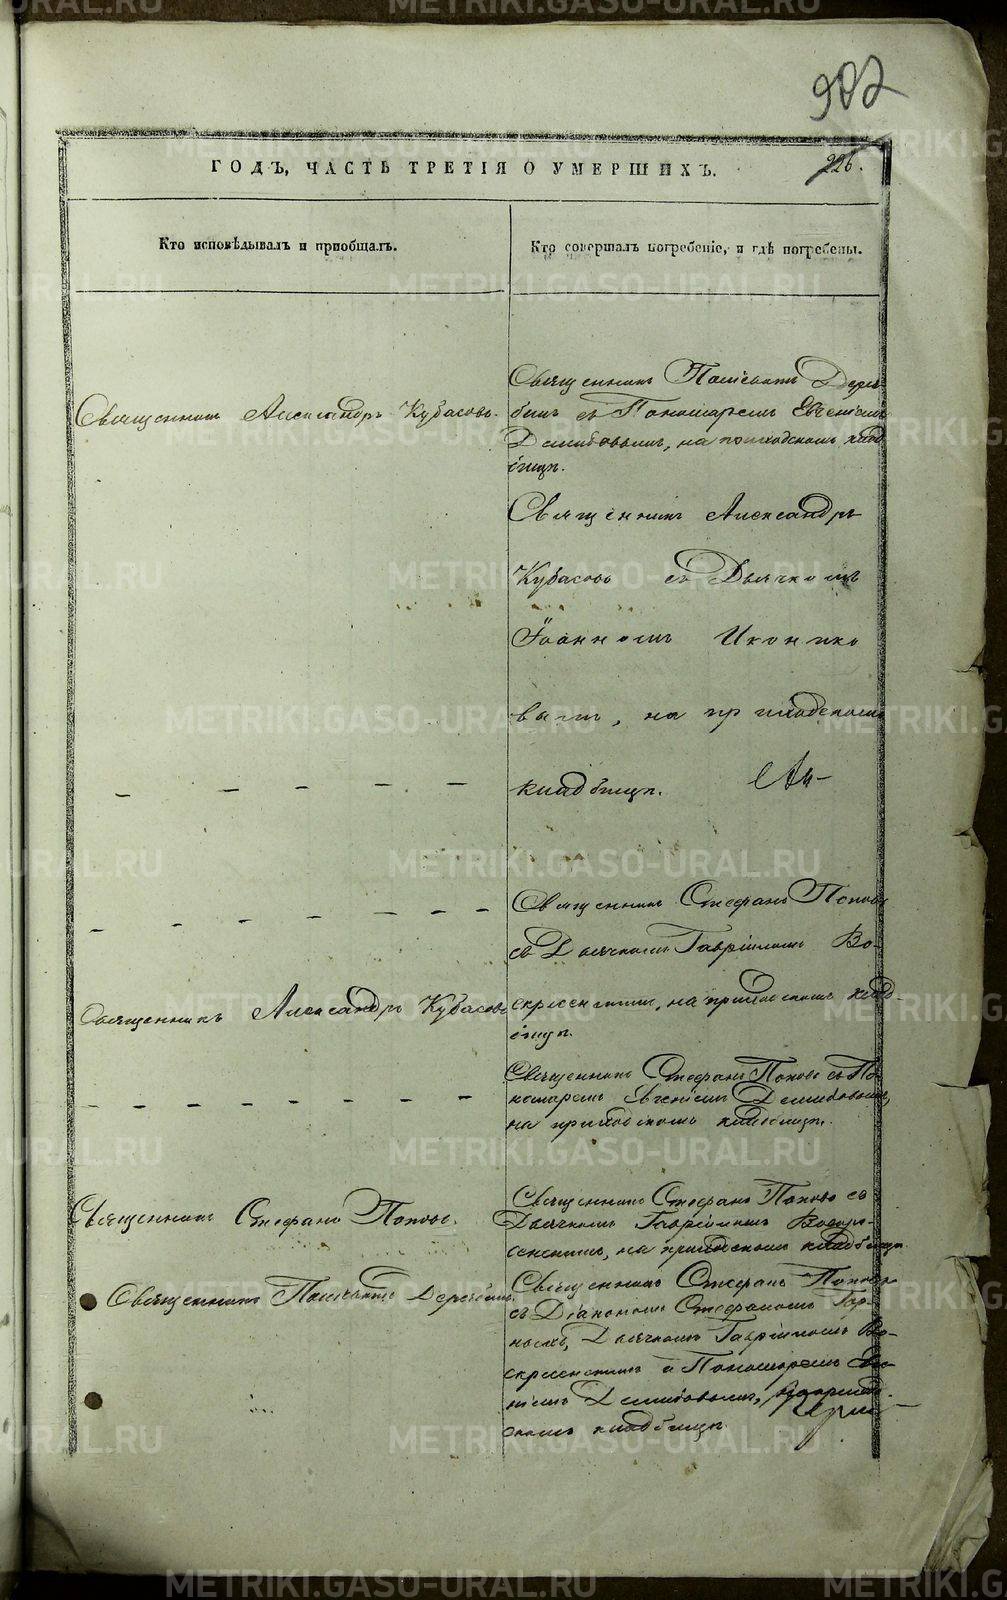 902
226.
ГОДЪ, ЧАСТЬ ТРЕТІЯ О УМЕРШИХЪ.
Кто исповѣдывалъ и пріобщалъ.
Кто совершалъ погребеніе, и гдѣ погребены.
Священникъ Александръ Кубасовъ.
Священникъ
съ Пономаремъ Евгеніемъ
Демидовымъ, на приходскомъ клад
бищѣ.
Священникъ Александръ
Кубасовъ съ Дьячкомъ
Іоанномъ Иконнико
вымъ, на приходскомъ
кладбищѣ.
Священникъ Стефанъ Поповъ
съ Дьячкомъ Гавріиломъ Во-
скресенскимъ, на приходскомъ клад-
бищѣ.
Священникъ Александръ Кубасовъ
Священникъ Стефанъ Поповъ съ По-
номаремъ Евгеніемъ Демидовымъ,
на приходскомъ кладбищѣ.
Священникъ Стефанъ Поповъ.
Священникъ Стефанъ Поповъ съ
Дьячкомъ Гавріиломъ Воскре-
сенскимъ, на приходскомъ кладбищѣ.
Священникъ
Священникъ Стефанъ Поповъ
съ Діакономъ Стефаномъ
Дьячкомъ Гавріиломъ Во-
скресенскимъ и Пономаремъ Евге-
ніемъ Демидовымъ,
скомъ кладбищѣ.
METRIKI.GASO-URAL.RU